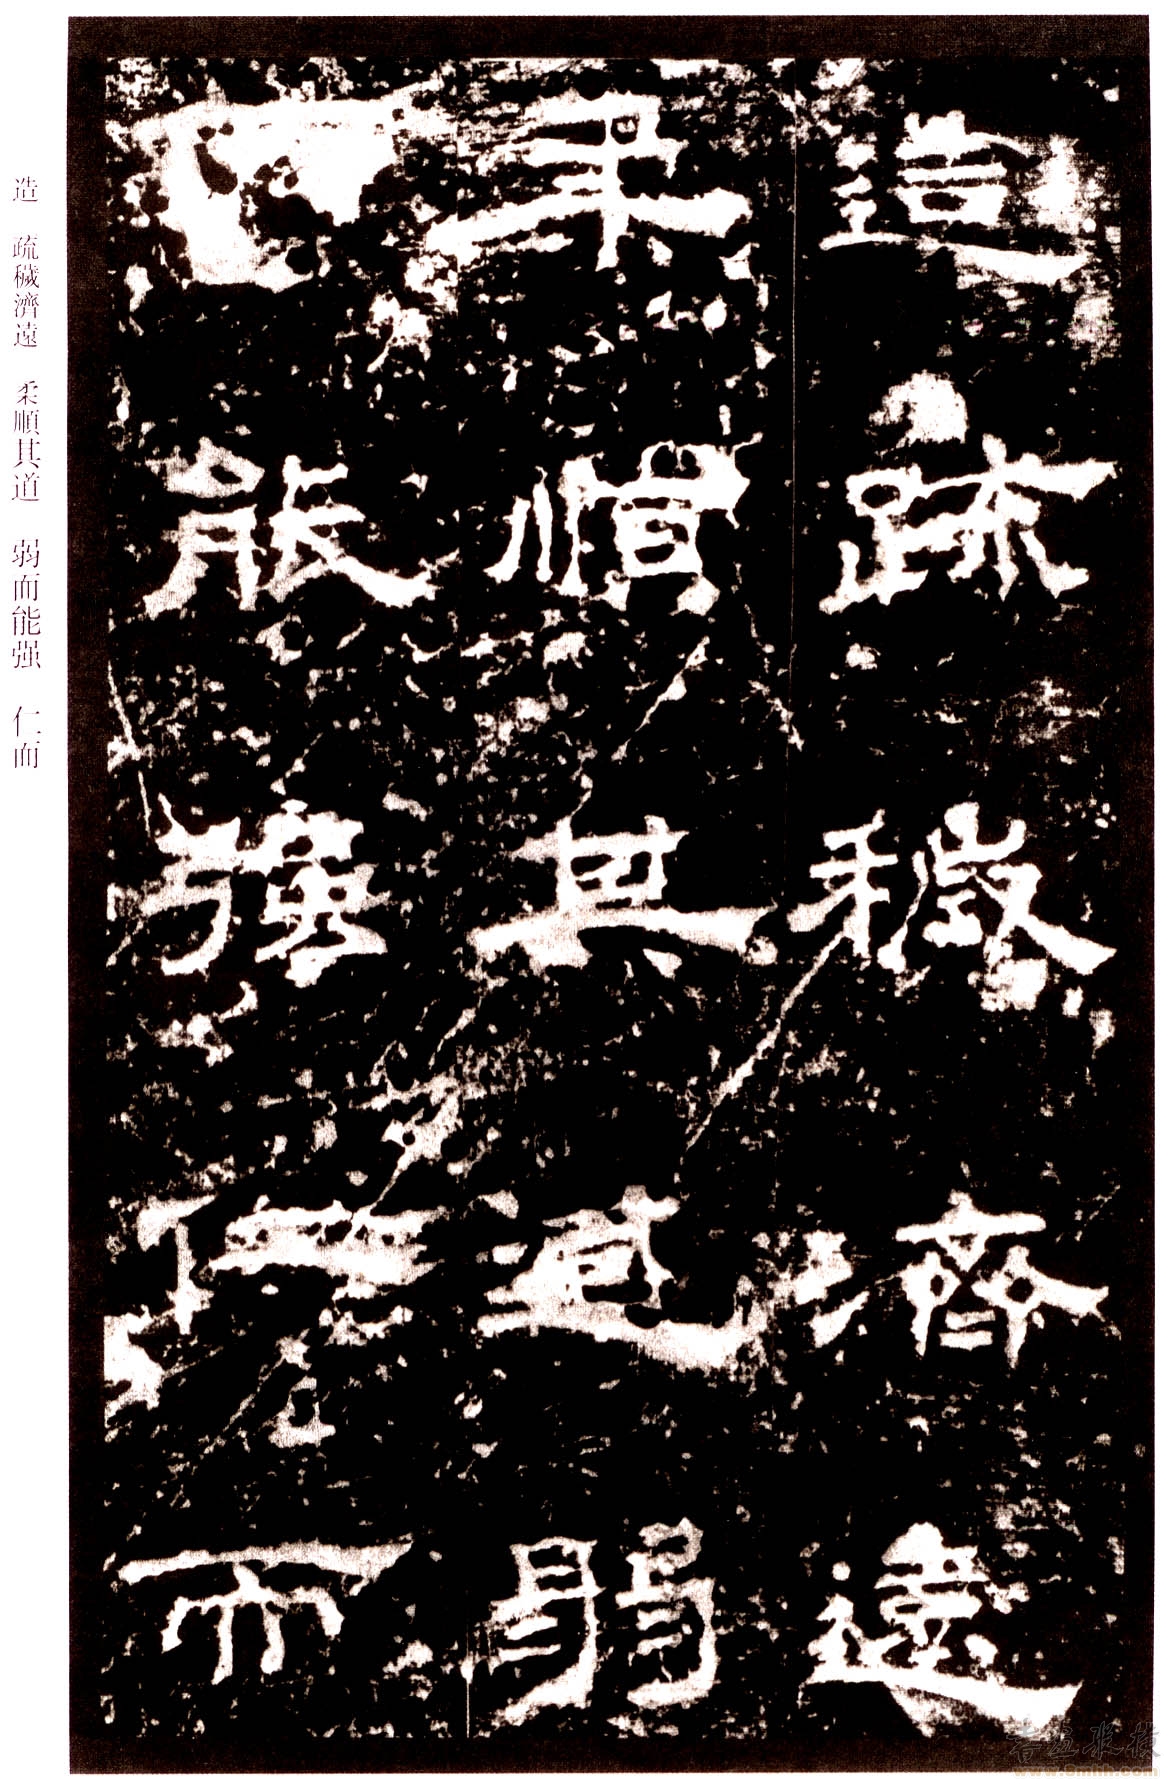 造疏穢濟遠
柔順其道弱
而能强仁而
造 疏穢濟遠 柔順其道 弱而能强 仁而
書畫縱橫
www.8mhh.com